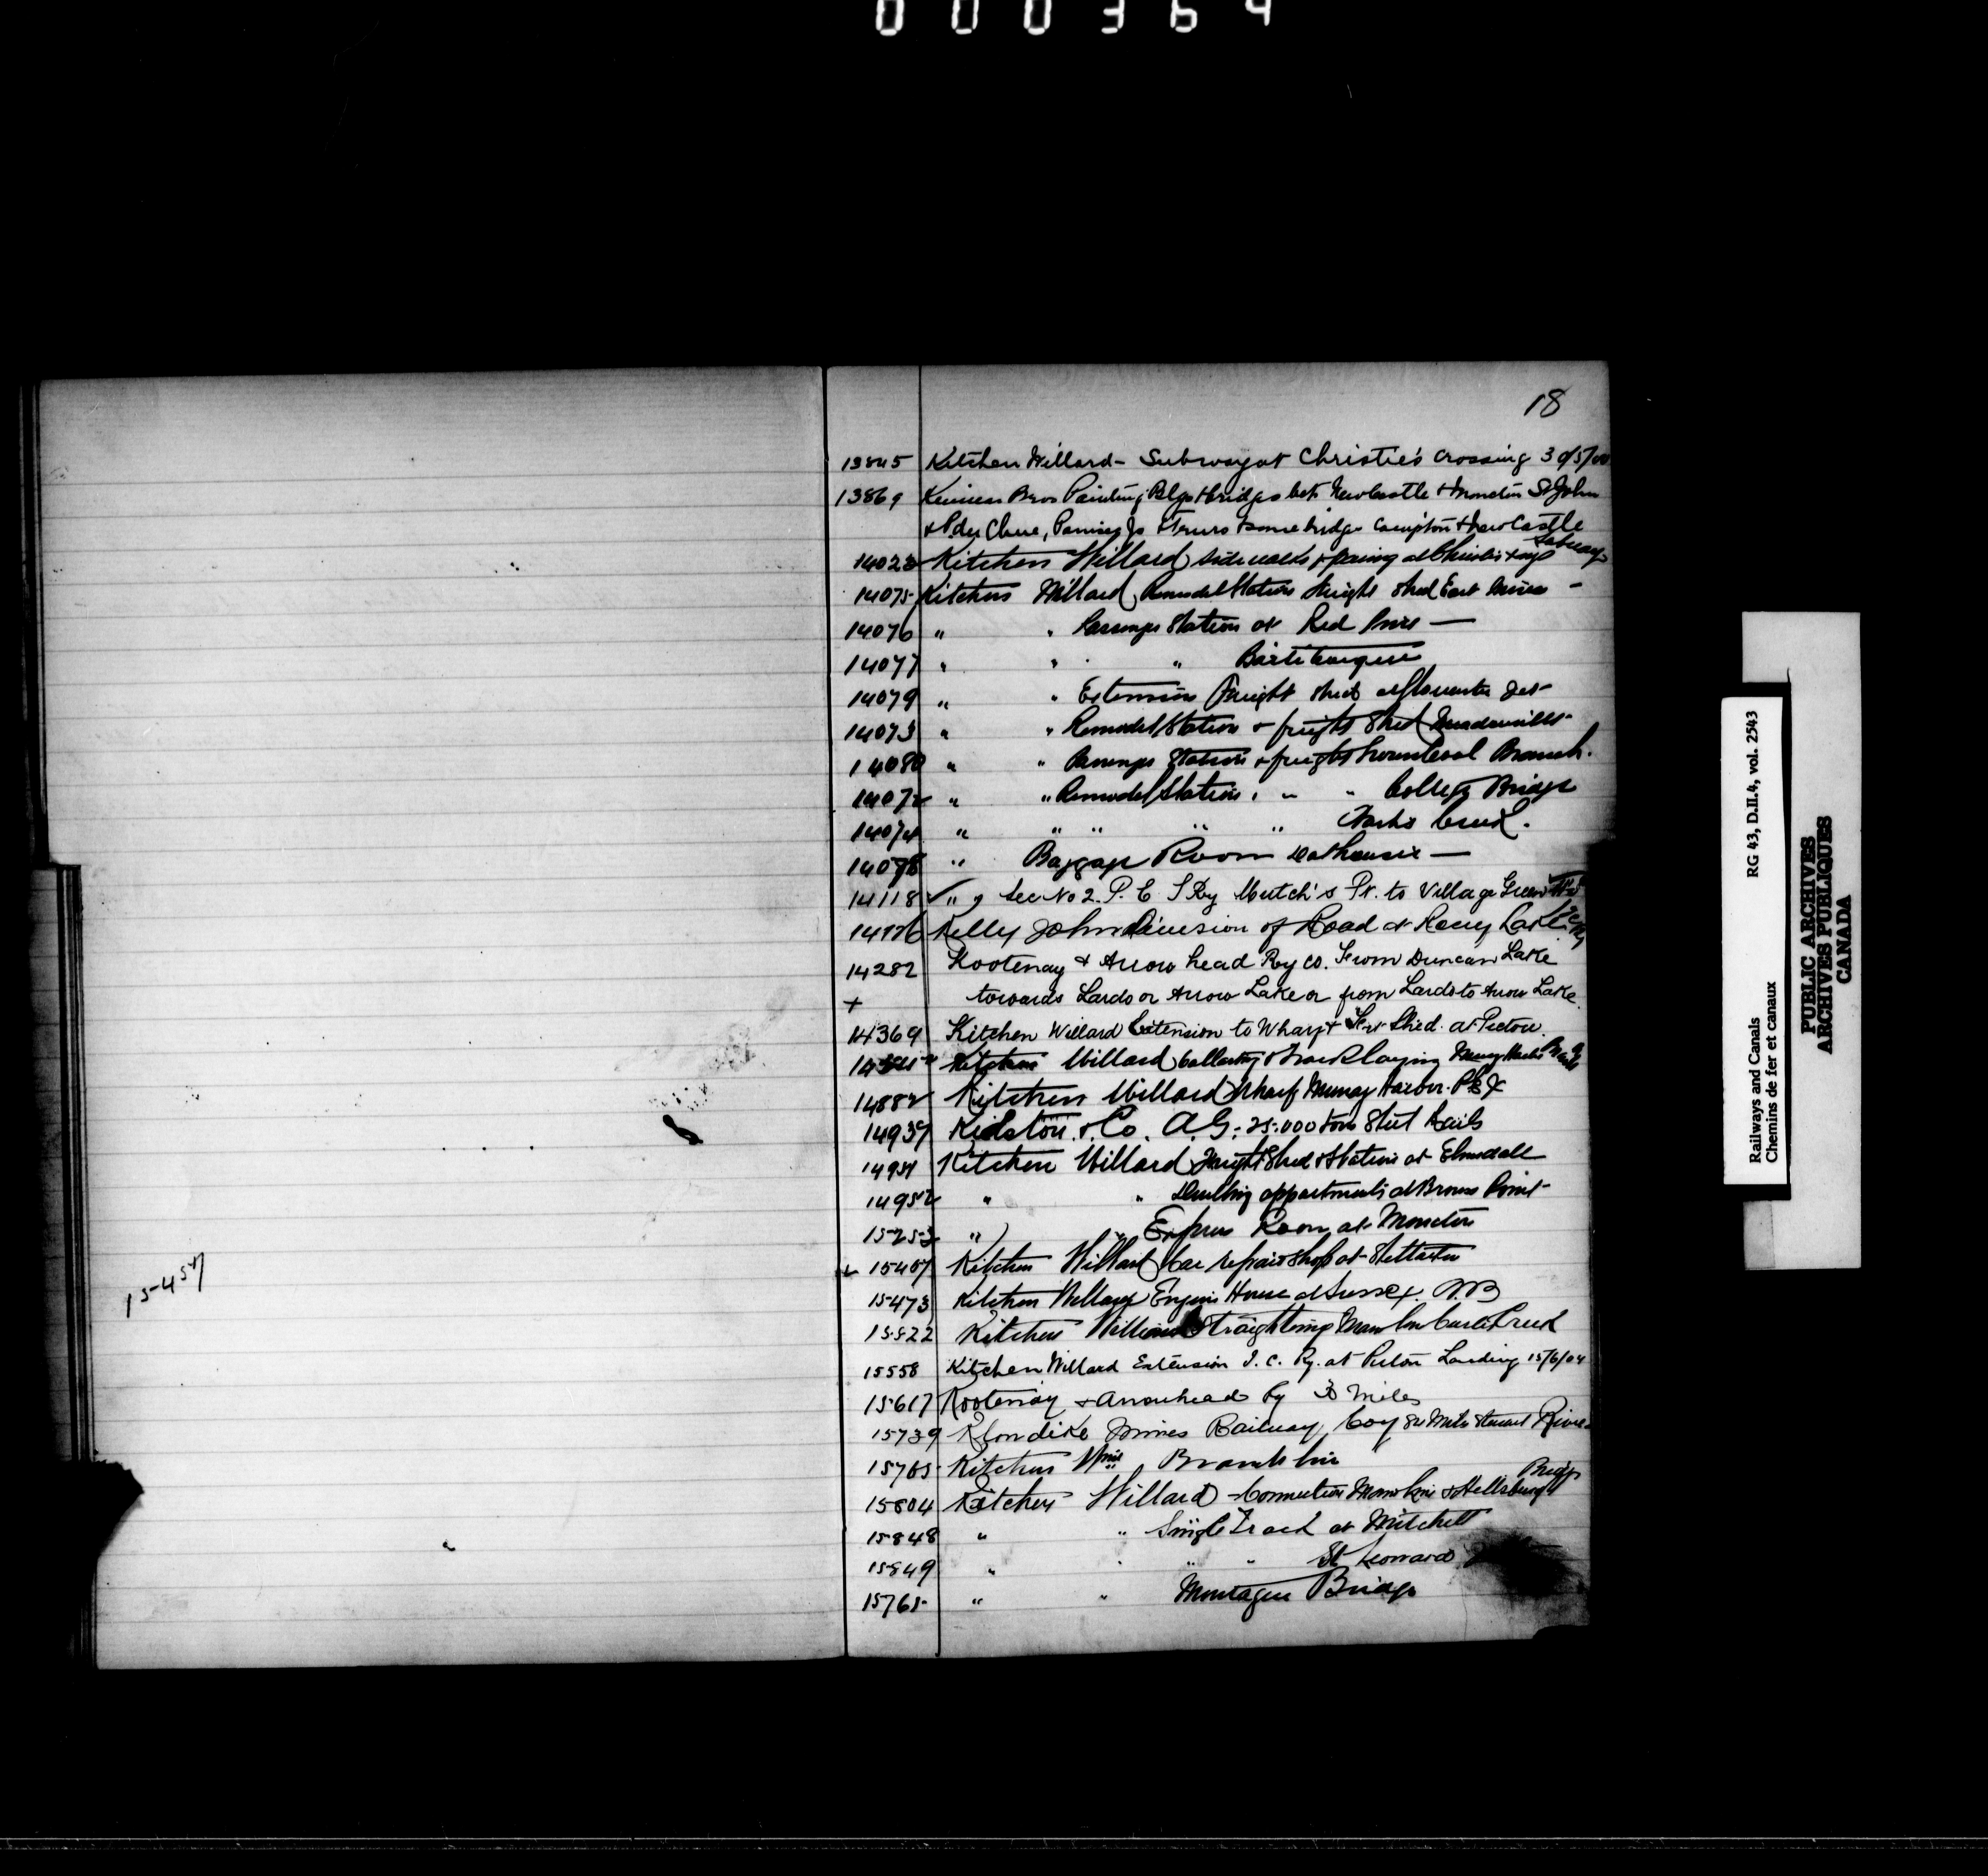 000364
18
13845 Kitchen Willard - Subway at Christie's Crossing 30/5/00
13869 Bros Painting Blgs & bridges bet. Newcastle & Moncton St John
& P. du Chene, & Truro & some bridges & NewCastle
14023 Kitchen Willard side walks & paving at Christie's Subway
14075 Kitchen Willard Remodel Station freight shed East Mines -
14076 " " Passenger Station at Red Pine —
14077 " " " Bartibogue
14079 " " Extension Freight shed at Gloucester Jct
14073 " " Remodel Station & freight Shed Meadowville
14080 " " Passenger Station & freight house Loch Branch.
14072 " " Remodel Station " " College Bridge
14074 " " " " " Creek.
14078 " Baggage Room Dalhousie —
14118 " Sec No 2. P. E. I Ry Mutch's Pt. to Village Green
14176 Kelly John Diversion of Road at Lake
14282 Kootenay & Arrow head Ry Co. From Duncan Lake
+ towards Lardo or Arrow Lake or from Lardo to Arrow Lake
14369 Kitchen Willard Extension to Wharf & Frt Shed. at Pictou
Kitchen Willard ballasting & Track laying Murray Harbor Branch
14882 Kitchen Willard Wharf Murray Harbor. P.E.I
14937 Kidston & Co. A.G. 25.000 tons Steel Rails
14951 Kitchen Willard Freight Shed & Station at Elmsdale
14952 " " Dwelling appartments at Browns Point
15253 " " Express Room at Moncton
15457
15407 Kitchen Willard Car repair shop at Stellarton
15473 Kitchen Willard Engine House at Sussex. N.B
15522 Kitchen Willard Straightening Main line Creek
15558 Kitchen Willard Extension I. C. Ry. at Pictou Landing 15/6/04
15617 Kootenay & Arrowhead Ry 30 miles
15739 Klondike Mines Railway Coy 84 Miles Stewart River
15765 Kitchen Branch line
15804 Kitchen Willard - Connection Main line & Hillsburgh Bridge
15848 " " Single Track at Mitchell
15849 " " " " St Leonard
15765 " " Montague Bridge
Railways and Canals RG 43, D.II.4, vol. 2543
Chemins de fer et canaux
PUBLIC ARCHIVES
ARCHIVES PUBLIQUES
CANADA